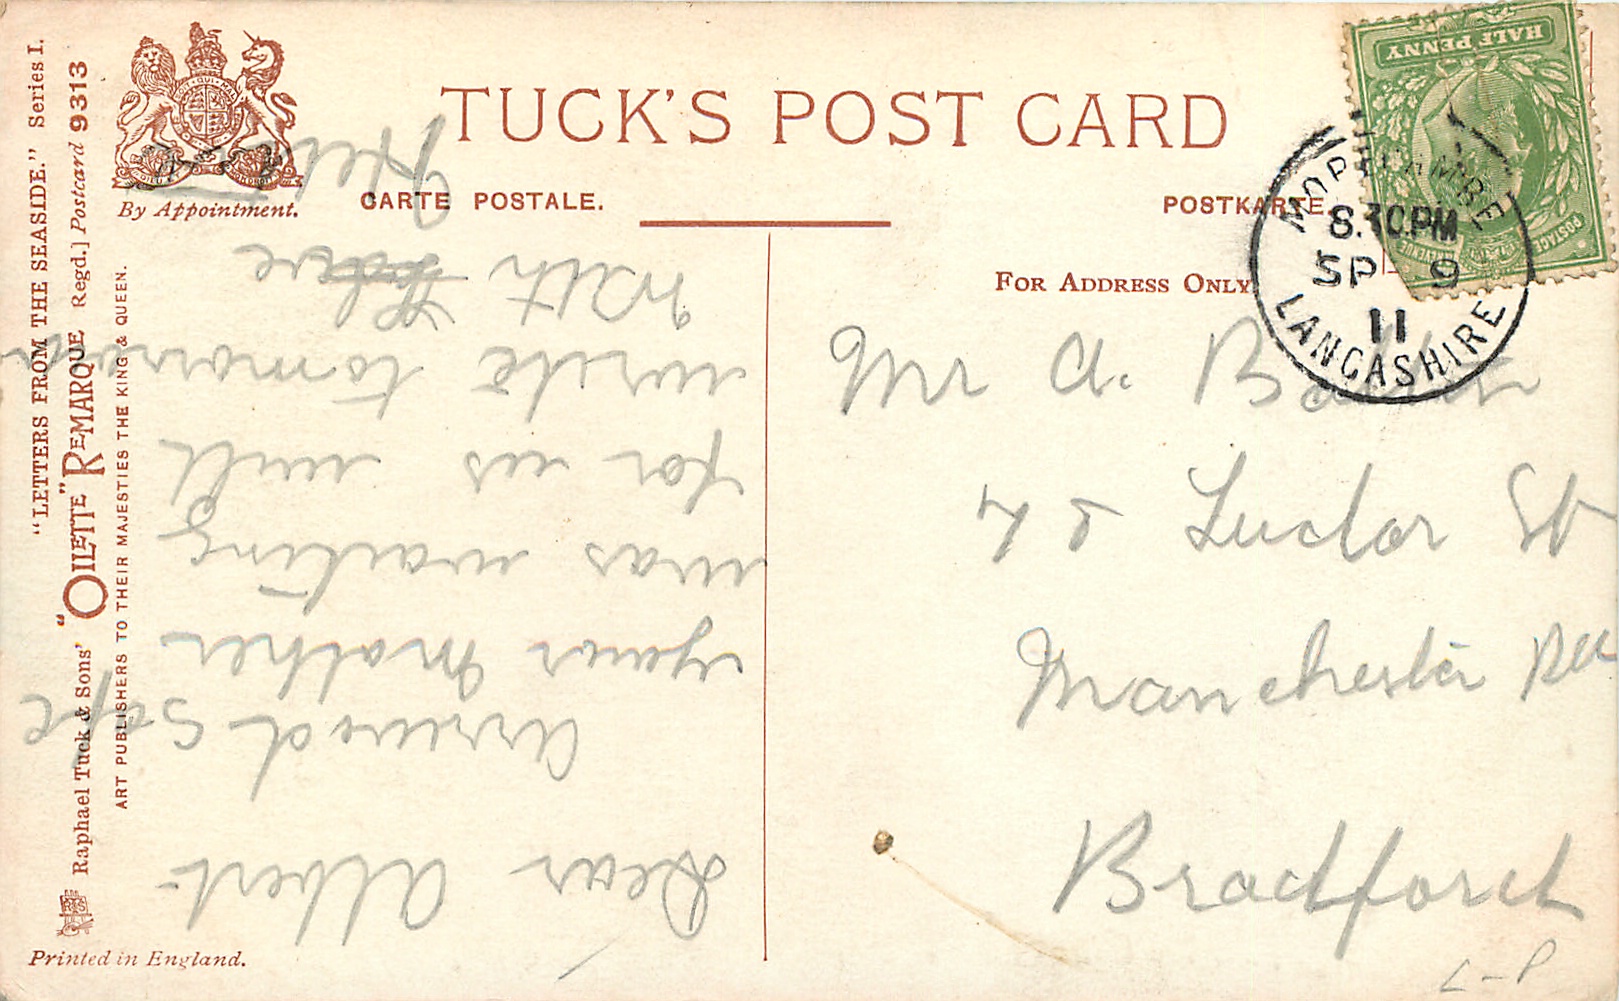 TUCK'S POST CARD
CARTE POSTALE.
POSTKARTE.
FOR ADDRESS ONLY
By Appointment.
"LETTERS FROM THE SEASIDE." Series I.
Raphael Tuck & Sons' "OILETTE" REMARQUE Regd.] Postcard 9313
ART PUBLISHERS TO THEIR MAJESTIES THE KING & QUEEN.
Printed in England.
HALF PENNY
POSTAGE
MORECAMBE
8.30PM
SP 9
11
LANCASHIRE
Mr A.
St
Manchester Rd
Bradford
L-P
Dear Albert
Arrived Safe
your Mother
was waiting
for us will
write tomorrow
With Love